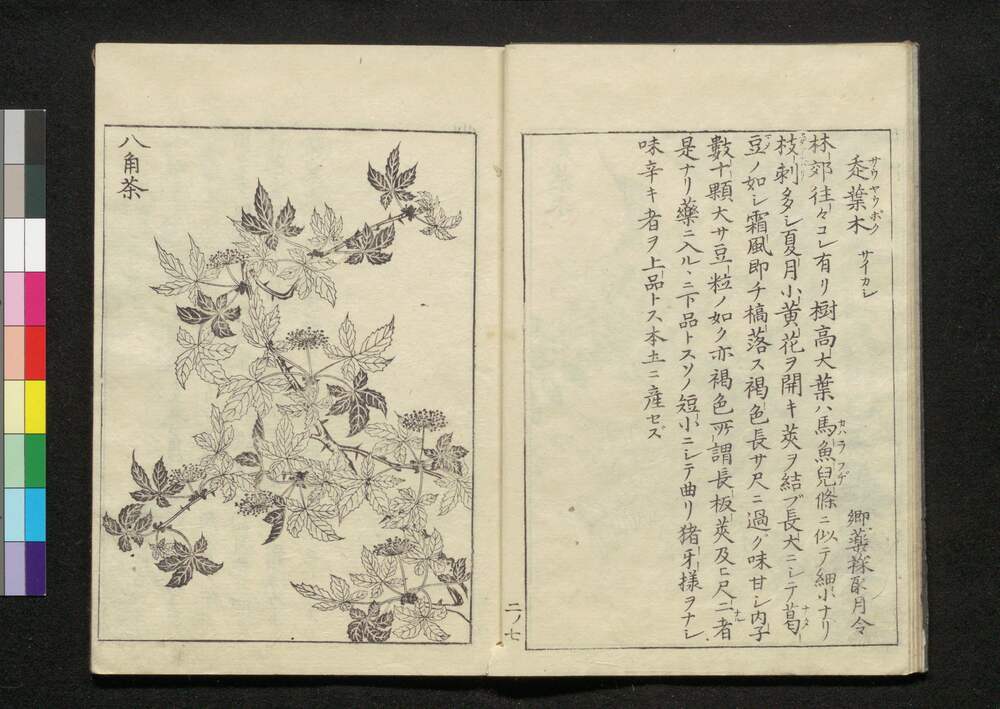 サウヤウボク
走葉木 サイカシ 郷薬採取月令
林郊往々コレ有リ樹高大葉ハ馬魚兒條ニ似テ細小ナリ
カハラフヂ
枝刺多シ夏月小黄花ヲ開キ莢ヲ結ブ長大ニシテ葛
ナタ
豆ノ如シ霜風即チ槁落ス褐色長サ尺ニ過グ味甘シ内子
マメ
數十顆大サ豆粒ノ如ク亦褐色所謂長板莢及ヒ尺二者
是ナリ藥ニ入ル、ニ下品トスソノ短小ニシテ曲リ猪牙様ヲナシ
味辛キ者ヲ上品トス本土ニ産セズ
二ノ七
八角茶